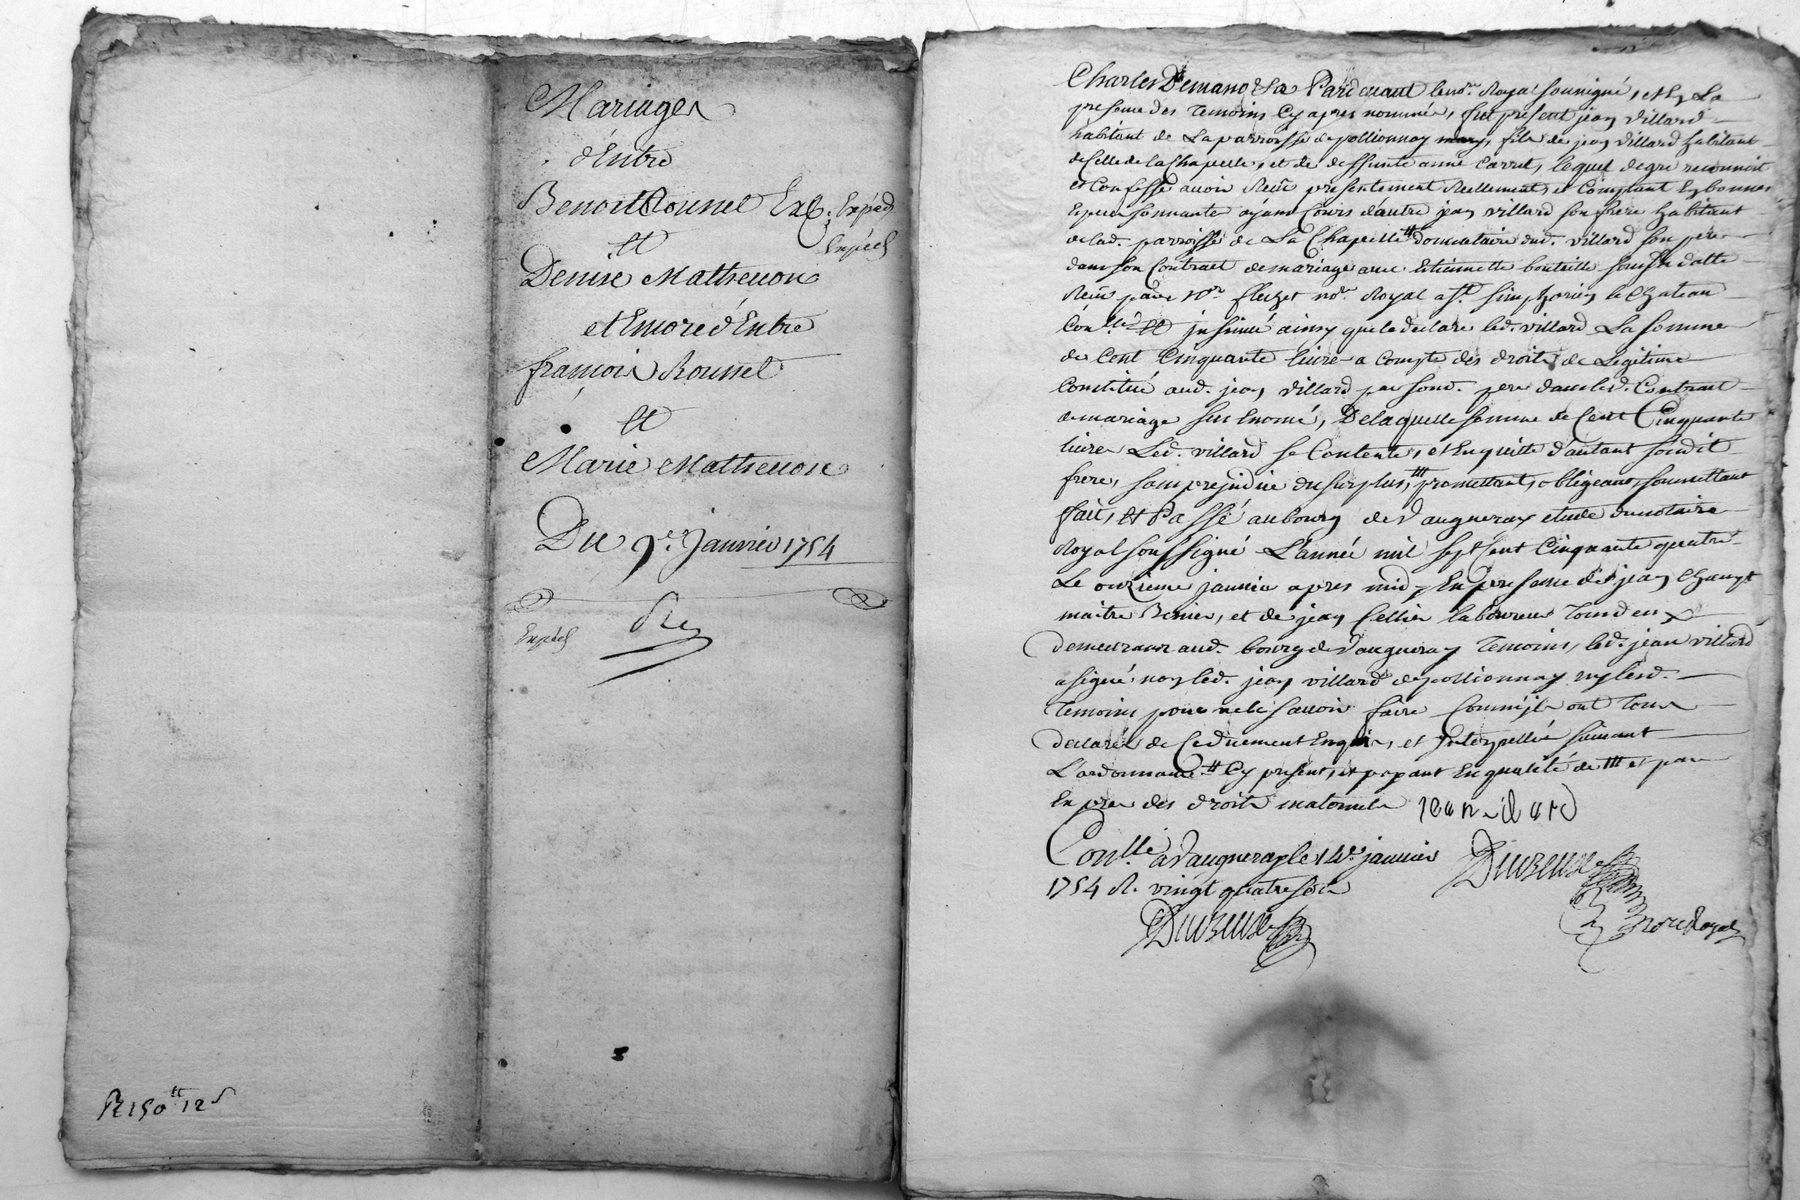 Mariages
d'Entre
Benoit Rounel Ex. Expéd
et Expéd
Denise Mathevon
et Encore d'Entre
françois Rounel
et
Marie Mathevon
Du 9.e Janvier 1754
Expéd
R 150 tt 12 s
Pardevant le no.re Royal soussigné, et En La
presence des temoins Cy apres nommés, fut present jean Villard
habitant de La parroisse de pollionnay fils de jean Villard habitant
de Celle de la Chapelle, et de deffunte anne Carret, lequel de gré reconnoit
et Confesse avoir Receu presentement Reellement, et Comptant En bonnes
Especes sonnante ayant Cours d'autre jean Villard son frere habitant
de lad. parroisse de La Chapelle # donnataire dud. Villard son pere
dans son Contract de mariage avec Etiennette bouteille sous sa datte
Receu par Me no.re Royal a St. simphorien le Chateau
Con.llé et jnsinué ainsy que le declare led. Villard La somme
de Cent Cinquante livres a Compte des droits de Legitime
Constitué aud. jean Villard par sond. pere dans led. Contract
de mariage sus Enoncé, De laquelle somme de Cent Cinquante
livres Led. Villard se Contente, et En quitte d'autant sondit
frere, sans prejudice du surplus, ## promettant, obligeant, soumettant
fait, et Passé au bourg de Vaugneray etude du notaire
Royal soussigné L'année mil sept Cent Cinquante quatre
Le onzieme janvier apres midy En presence de jean
maitre et de jean Cellier laboureur tous deux
demeurants aud. bourg de Vaugneray temoins, led. jean Villard
a signé non led. jean Villard de pollionnay ny lesd.
temoins pour ne le savoir faire Comme jls ont tous
declaré de Ce duement Enquis, et jnterpellés suivant
L'ordonnance # Cy present, et payant En qualité de ## et par
Expres des droits maternels jean vilard
Con.llé a Vaugneray le 14.e janvier
1754 R. vingt quatre sols
no.re Royal